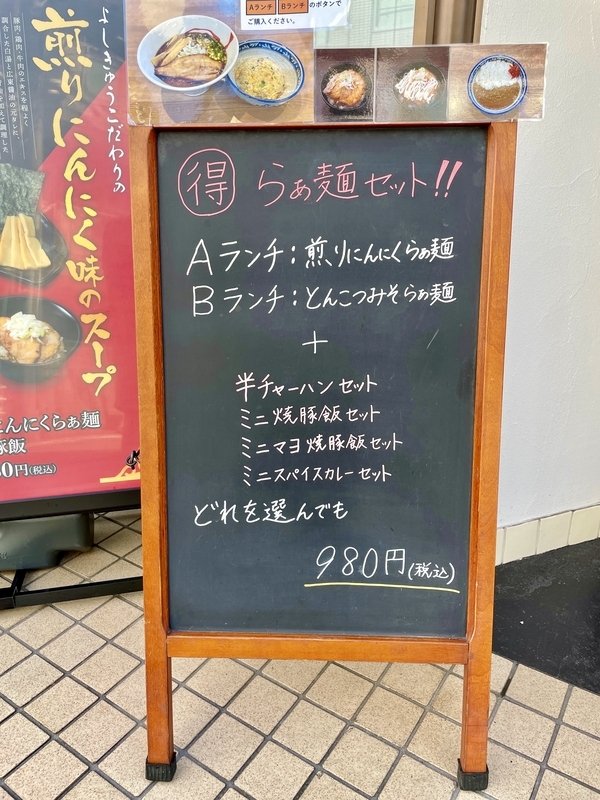 Aランチ Bランチ のボタンで
ご購入ください。
よしきゅうこだわりの
煎りにんにく味のスープ
にんにくらぁ麺
豚飯
0円(税込)
得 らぁ麺セット!!
Aランチ:煎りにんにくらぁ麺
Bランチ:とんこつみそらぁ麺
+
半チャーハンセット
ミニ焼豚飯セット
ミニマヨ焼豚飯セット
ミニスパイスカレーセット
どれを選んでも
980円(税込)